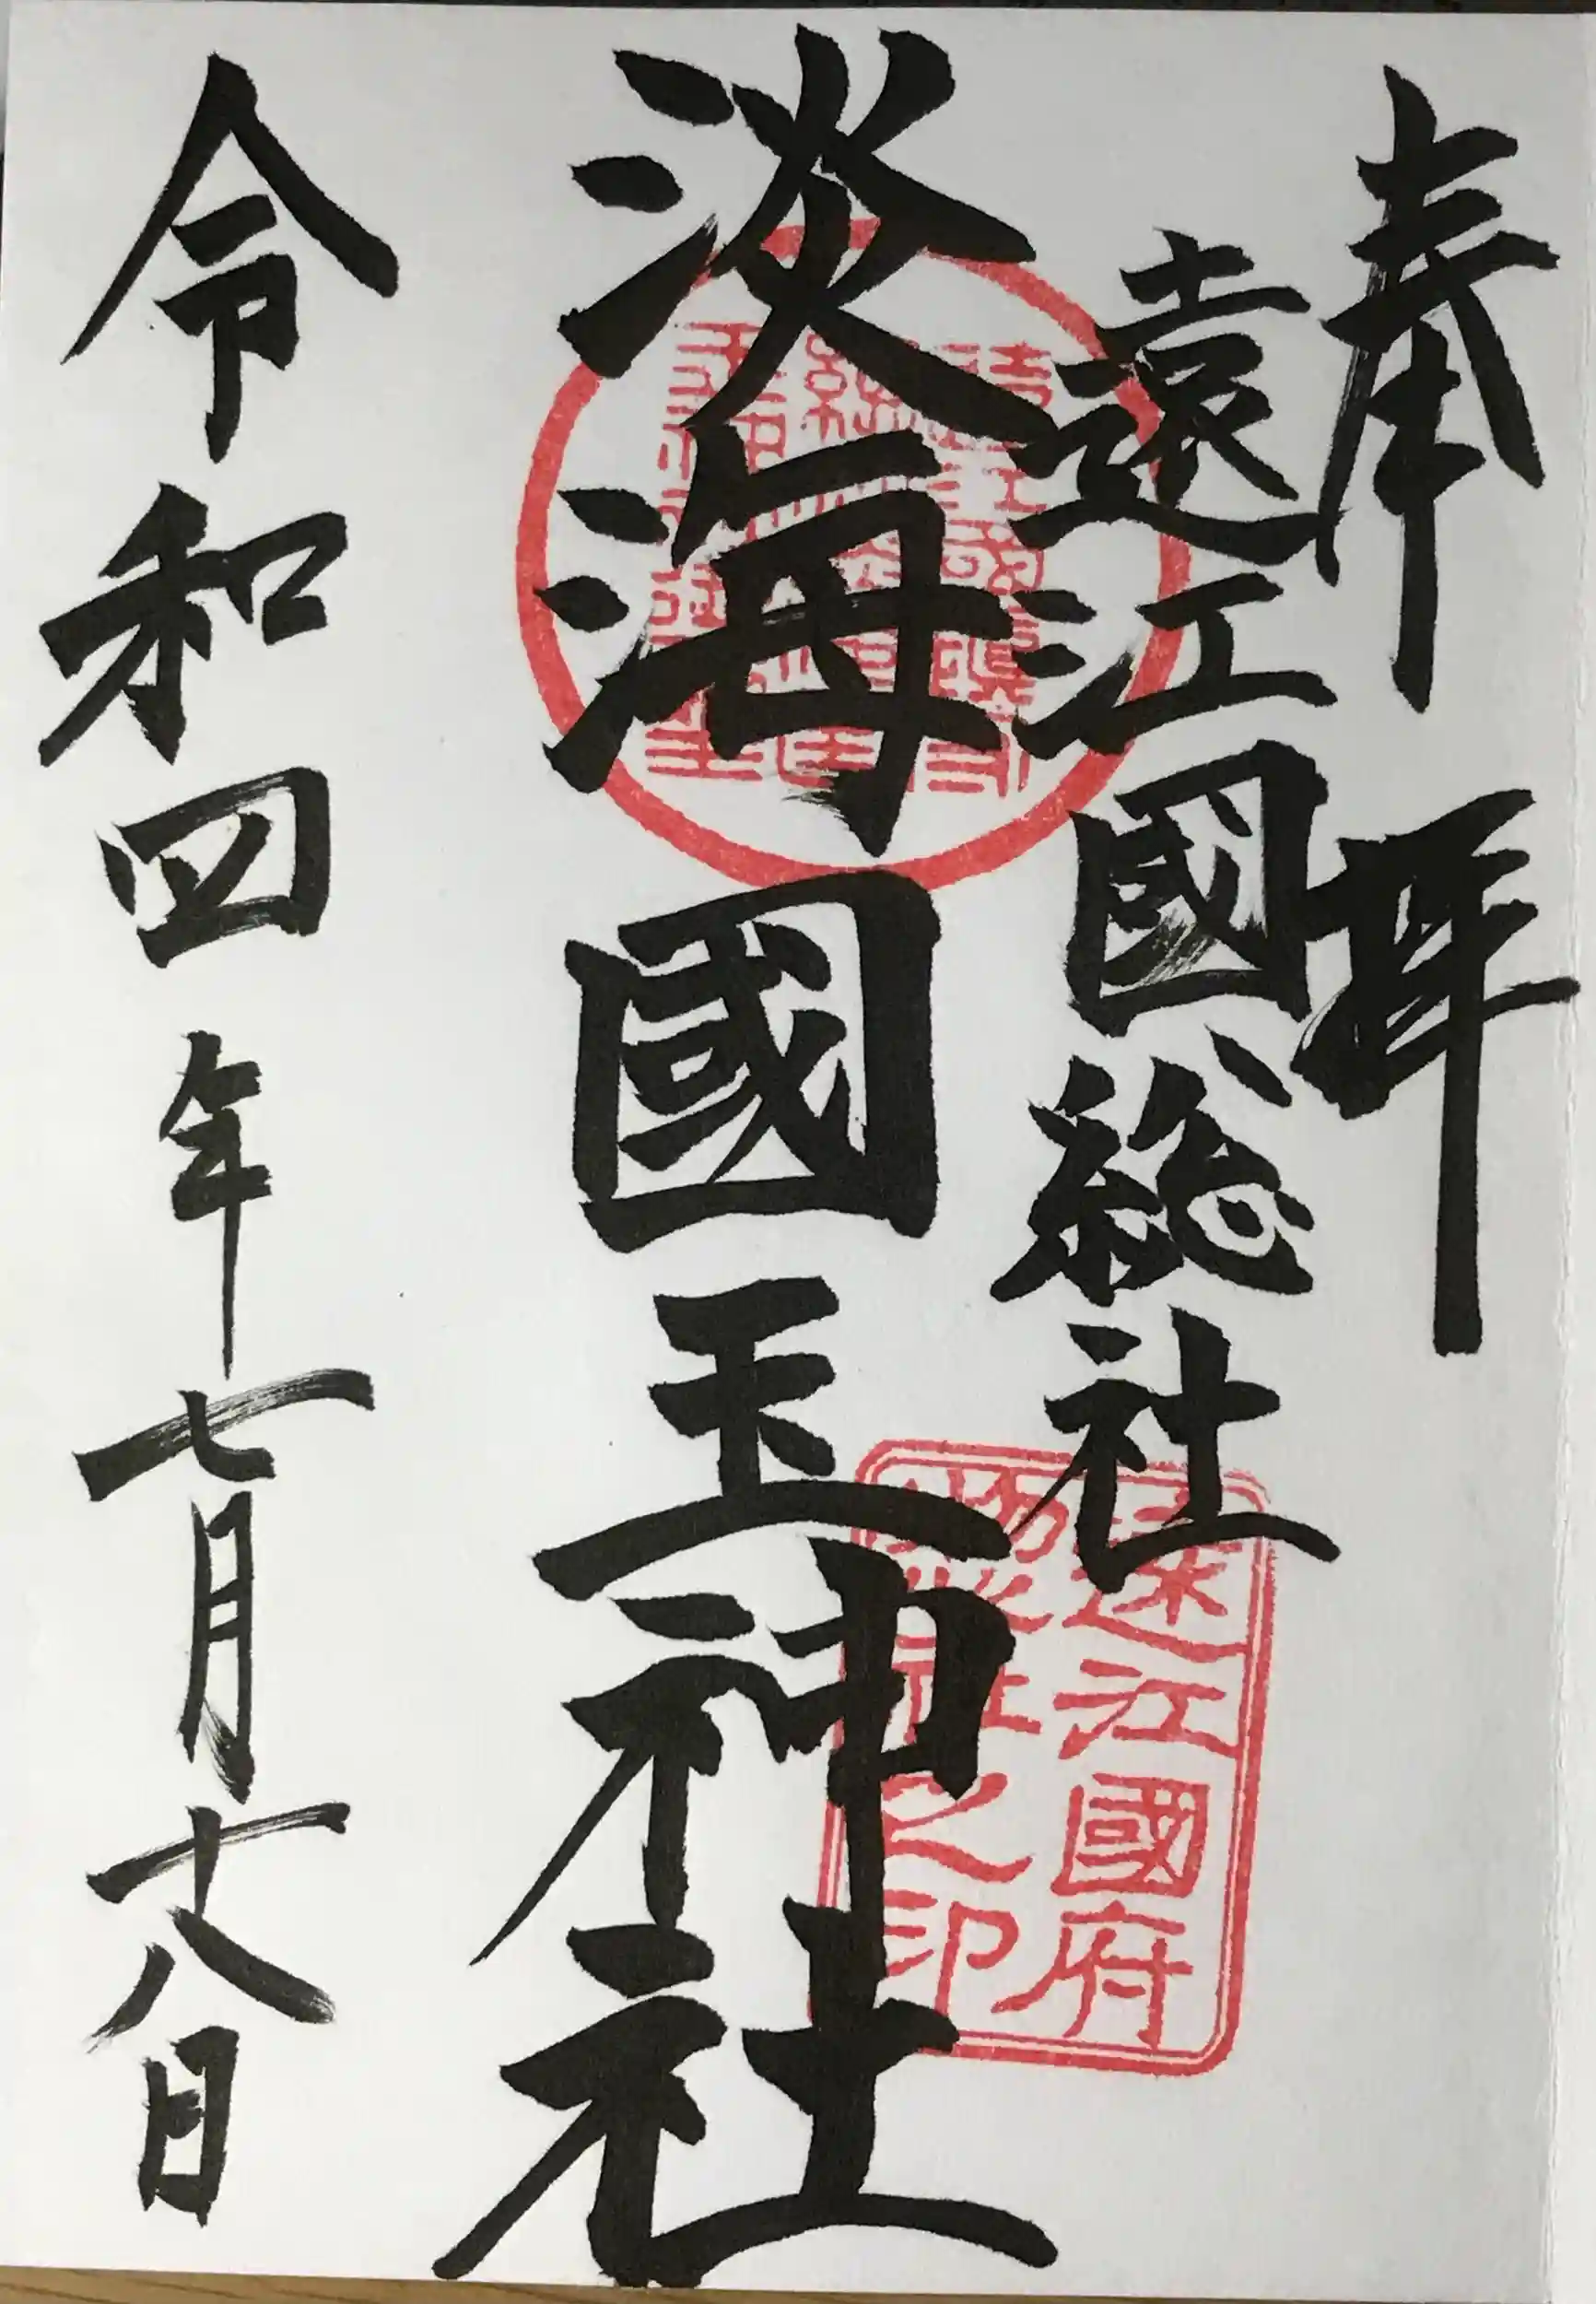 奉拝
遠江國総社
淡海國玉神社
令和四年七月十八日
遠江國府
惣社之印